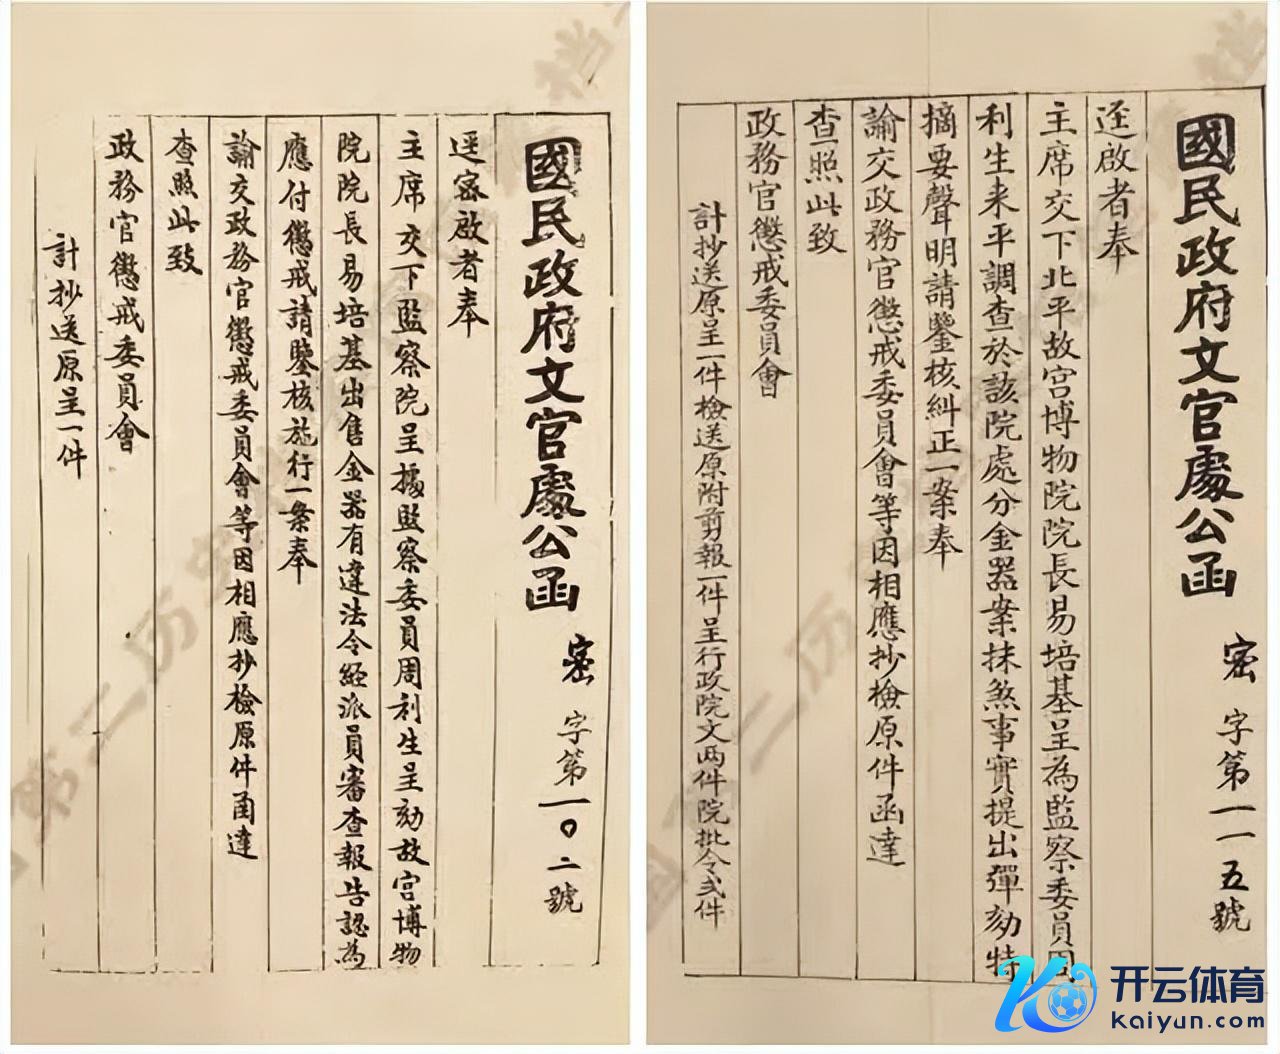 國民政府文官處公函 密字第一一五號
逕啟者奉
主席交下北平故宮博物院院長易培基呈為監察委員周
利生来平調查於該院處分金器案抹煞事實提出彈劾特
摘要聲明請鑒核糾正一案奉
諭交政務官懲戒委員會等因相應抄檢原件函達
查照此致
政務官懲戒委員會
計抄送原呈一件檢送原附剪報一件呈行政院文两件院批令弍件
國民政府文官處公函 密字第一〇二號
逕密啟者奉
主席交下監察院呈據監察委員周利生呈劾故宮博物
院院長易培基出售金器有違法令經派員審查報告認為
應付懲戒請鑒核施行一案奉
諭交政務官懲戒委員會等因相應抄檢原件函達
查照此致
政務官懲戒委員會
計抄送原呈一件
开云体育
Kaiyun.com